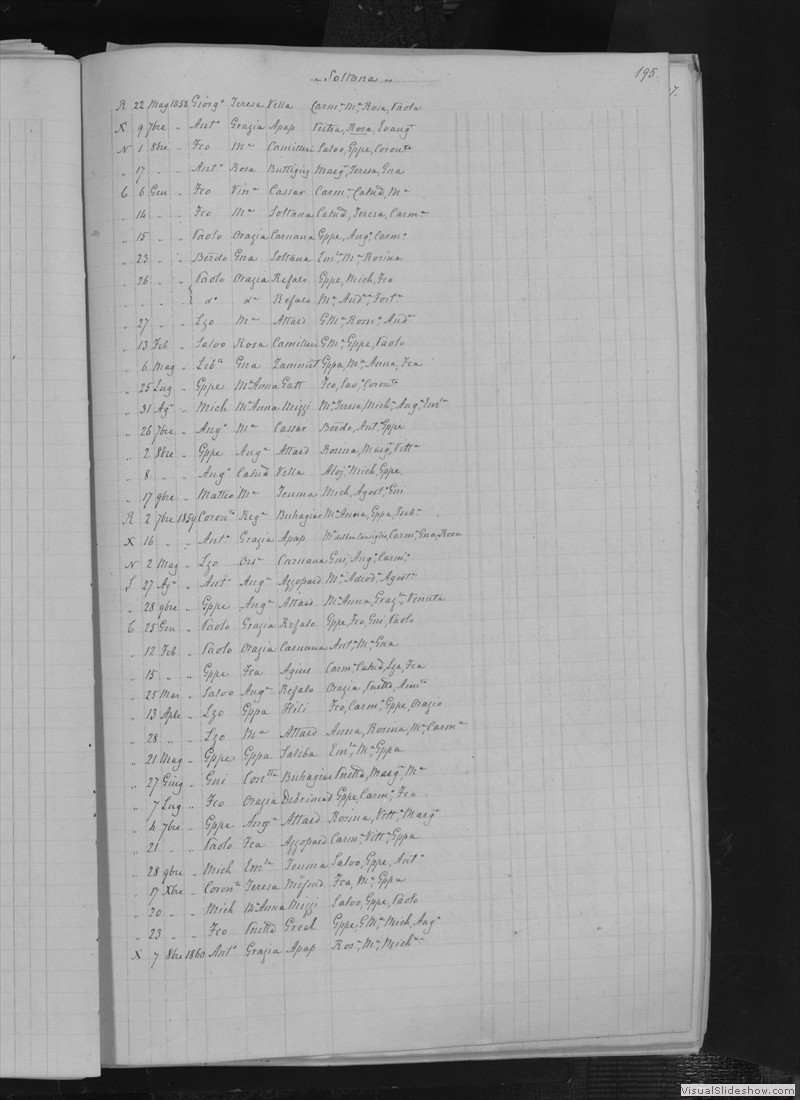 Soltana
195.
7.
R 22 Mag 1858 Giorg.o Teresa Vella Carm.a M.a Rosa, Paola
X 9 7bre " Ant.o Grazia Apap Pietra, Rosa, Evang.
N 1 8bre " Fco M.a Camilleri Salvo, Gppe, Coron.to
" 17 " " Ant.o Rosa Buttigieg Marg. Teresa, Gna
C 6 Gen " Fco Vin.a Cassar Carm.a Catnd, M.a
" 14 " " Fco M.a Soltana Catnd, Teresa, Carm.a
" 15 " " Paolo Orazia Caruana Gppe, Ang.o Carm.o
" 23 " " Berdo Gna Soltana Em.la M.a Rosina
" 26 " " Paolo Orazia Refalo Gppe, Mich, Fco
" " " " d.o d.a Refalo M.a And.a Fort.a
" 27 " " Lzo M.a Attard G.M.a Ros.a And.
" 13 Feb " Salvo Rosa Camilleri G.M.a Gppe, Paolo
" 6 Mag " Lib.to Gna Zammit Gppa, M.a Anna, Fca
" 25 Lug " Gppe M.a Anna Gatt Fco, Sav.o Coron.to
" 31 Ag.o " Mich M.a Anna Mizzi M.a Teresa, Mich.a Ang.o Em.la
" 26 7bre " Ang.o M.a Cassar Berdo, Ant.o Gppe
" 2 8bre " Gppe Ang.a Attard Rosina, Marg. Vitt.a
" 8 " " Ang.o Catnd Vella Aloj. Mich, Gppe
" 17 9bre " Matteo M.a Teuma Mich, Agost.o Gni
R 2 7bre 1859 Coron.to Reg.a Buhagiar M.a Anna, Gppa
X 16 " " Ant.o Grazia Apap M.a del Bon Consiglio, Carm.a Gna, Rosa
N 2 Mag " Lzo Ors.a Caruana Gni, Ang.o Carm.o
S 27 Ag.o " Ant.o Ang.a Azzopard M.a Adeod.a Agost.o
" 28 9bre " Gppe Ang.a Attard M.a Anna, Graz.la Venuta
C 25 Gen " Paolo Grazia Refalo Gppe, Fco, Gni, Paolo
" 12 Feb " Paolo Orazia Caruana Ant.a M.a Gna
" 15 " " Gppe Fca Agius Carm.a Catnd, Lza, Fca
" 25 Mar " Salvo Ang.a Refalo Orazia, Pnetta
" 13 Aple " Lzo Gppa Heli Fco, Carm.o Gppe, Orazio
" 28 " " Lzo M.a Attard Anna, Rosina, M.a Carm.a
" 21 Mag " Gppe Gppa Saliba Em.la M.a Gppa
" 27 Giug " Gni Con.tta Buhagiar Pnetta, Marg. M.a
" 7 Lug " Fco Orazia Debrincad Gppe, Carm.o Fco
" 4 7bre " Gppe Ang.a Attard Rosina, Vitt.a Marg.
" 21 " " Paolo Fca Azzopard Carm.a Vitt.a Gppa
" 28 9bre " Mich Em.la Teuma Salvo, Gppe, Ant.o
" 17 Xbre " Coron.to Teresa Mifsud Fca, M.a Gppa
" 20 " " Mich M.a Anna Mizzi Salvo, Gppe, Paolo
" 23 " " Fco Pnetta Grech Gppe, G.M.a Mich, Ang.o
X 7 8bre 1860 Ant.o Grazia Apap Ros.a M.a Mich.na
VisualSlideshow.com